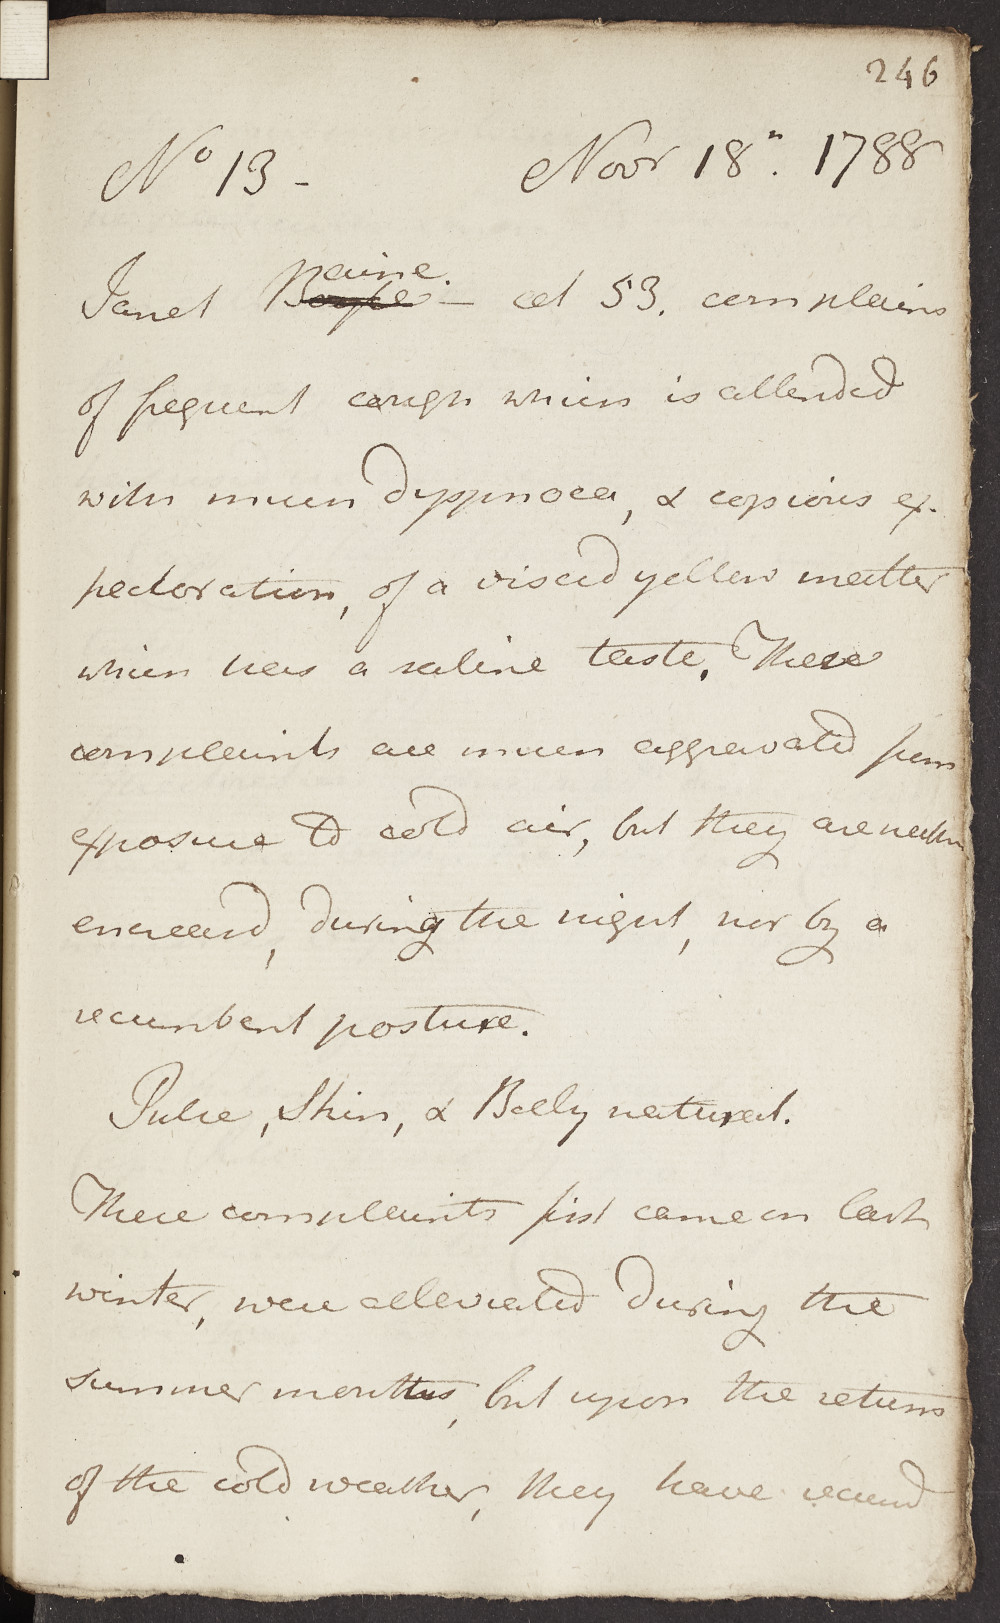 246
No 13 - Novr 18th. 1788
Paine.
Janet - aet 53. complains
of frequent cough which is attended
with much dyspnoea, & copious ex-
pectoration, of a viscid yellow matter
which has a saline taste. These
complaints are much aggravated from
exposure to cold air, but they are neither
encreased, during the night, nor by a
recumbent posture.
Pulse, Skin, & Belly natural.
These complaints first came on last
winter, were alleviated during the
summer months, but upon the return
of the cold weather, they have recurred